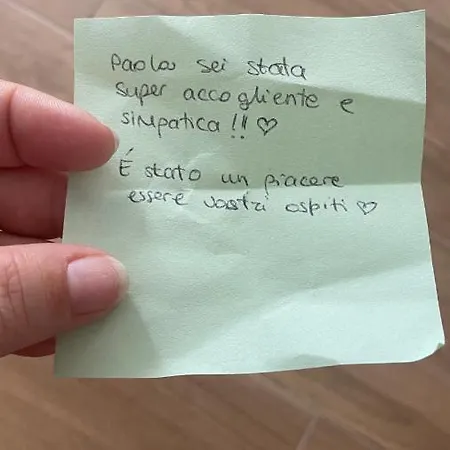 Paola sei stata
super accogliente e
simpatica!! ♡
É stato un piacere
essere vostri ospiti ♡